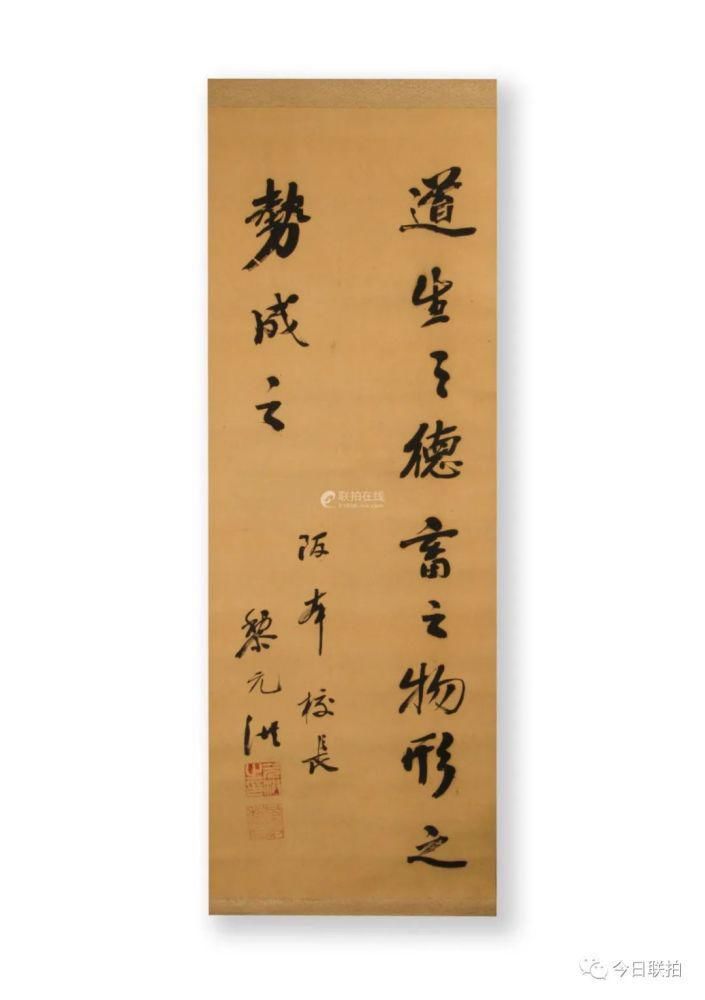 道生之德畜之物形之
勢成之
阪本校長
黎元洪
联拍在线
今日联拍